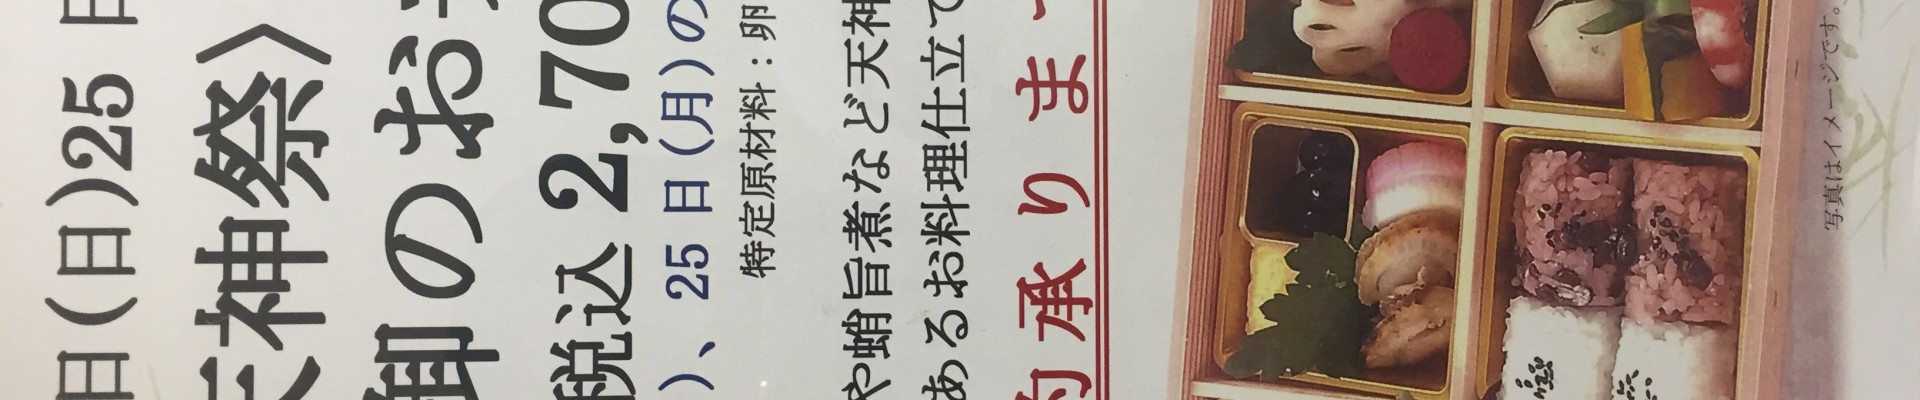 日(日)25 日
天神祭〉
御のお
税込 2,70
)、25 日(月)の
特定原材料：卵
や蛸旨煮など天神
あるお料理仕立て
約承りま
写真はイメージです。